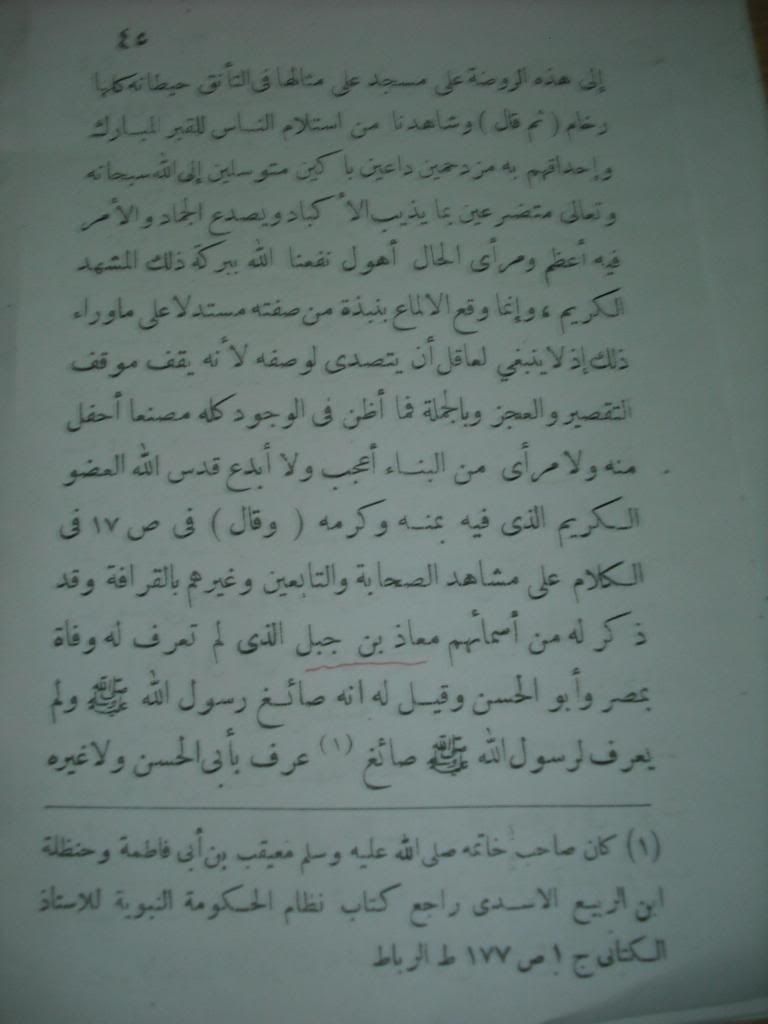 ٤٥
إلى هذه الروضة على مسجد على مثالها فى التأنق حيطانه كلها
رخام ( ثم قال ) وشاهدنا من استلام الناس للقبر المبارك
وإحداقهم به مزدحمين داعين باكين متوسلين إلى الله سبحانه
وتعالى متضرعين بما يذيب الأكباد ويصدع الجماد والأمر
فيه أعظم ومرأى الحال أهول نفعنا الله ببركة ذلك المشهد
الكريم ، وإنما وقع الالماع بنبذة من صفته مستدلا على ماوراء
ذلك إذ لا ينبغي لعاقل أن يتصدى لوصفه لأنه يقف موقف
التقصير والعجز وبالجملة فما أظن فى الوجود كله مصنعا أحفل
منه ولا مرأى من البناء أعجب ولا أبدع قدس الله العضو
الكريم الذى فيه بمنه وكرمه ( وقال ) فى ص ١٧ فى
الكلام على مشاهد الصحابة والتابعين وغيرهم بالقرافة وقد
ذكر له من أسمائهم معاذ بن جبل الذى لم تعرف له وفاة
بمصر وأبو الحسن وقيل له انه صائغ رسول الله ﷺ ولم
يعرف لرسول الله ﷺ صائغ (١) عرف بأبى الحسن ولا غيره
(١) كان صاحب خاتمه صلى الله عليه وسلم معيقب بن أبى فاطمة وحنظلة
ابن الربيع الاسدى راجع كتاب نظام الحكومة النبوية للاستاذ
الكتانى ج ١ ص ١٧٧ ط الرباط